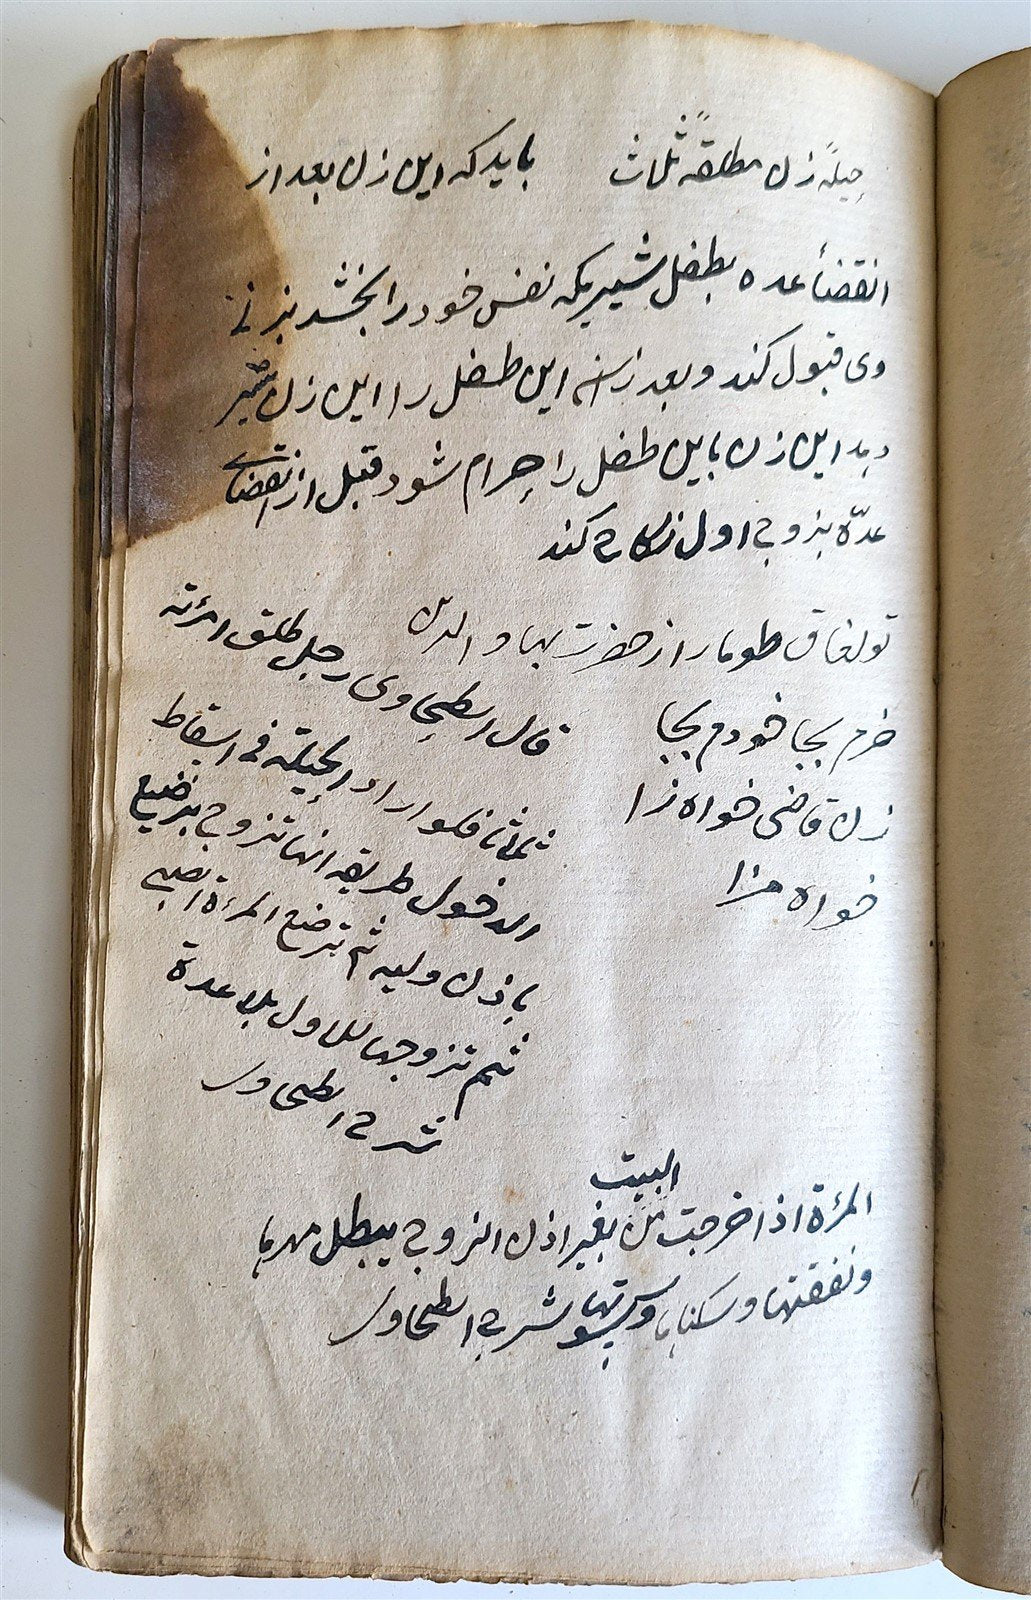 حیلهٔ زن مطلقهٔ ثلاث باید که این زن بعد از
انقضأ عده بطفل شیریکه نفس خود را بخشد بزنی
وی قبول کند و بعد زانه این طفل را این زن شیر
دهد این زن باین طفل را حرام شود قبل از انقضای
عدّه بزوج اول نکاح کند
تولغاق طومار از حضرت بهاو الدین
خرم بجا خودم بجا
زن قاضی خواه زا
خواه مزا
قال الطحاوی رجل طلق امرئته
ثلاثا فلو اراد الحیلة فی اسقاط
الدخول طریقه انها تزوج برضیع
باذن ولیه ثم ترضع المرءة الصبی
ثم تزوجها للاول بلا عدة
شرح الطحاوی
المرءة اذا خرجت من البیت بغیر اذن الزوج یبطل مهرها
ونفقتها وسکناها وکسوتها شرح الطحاوی